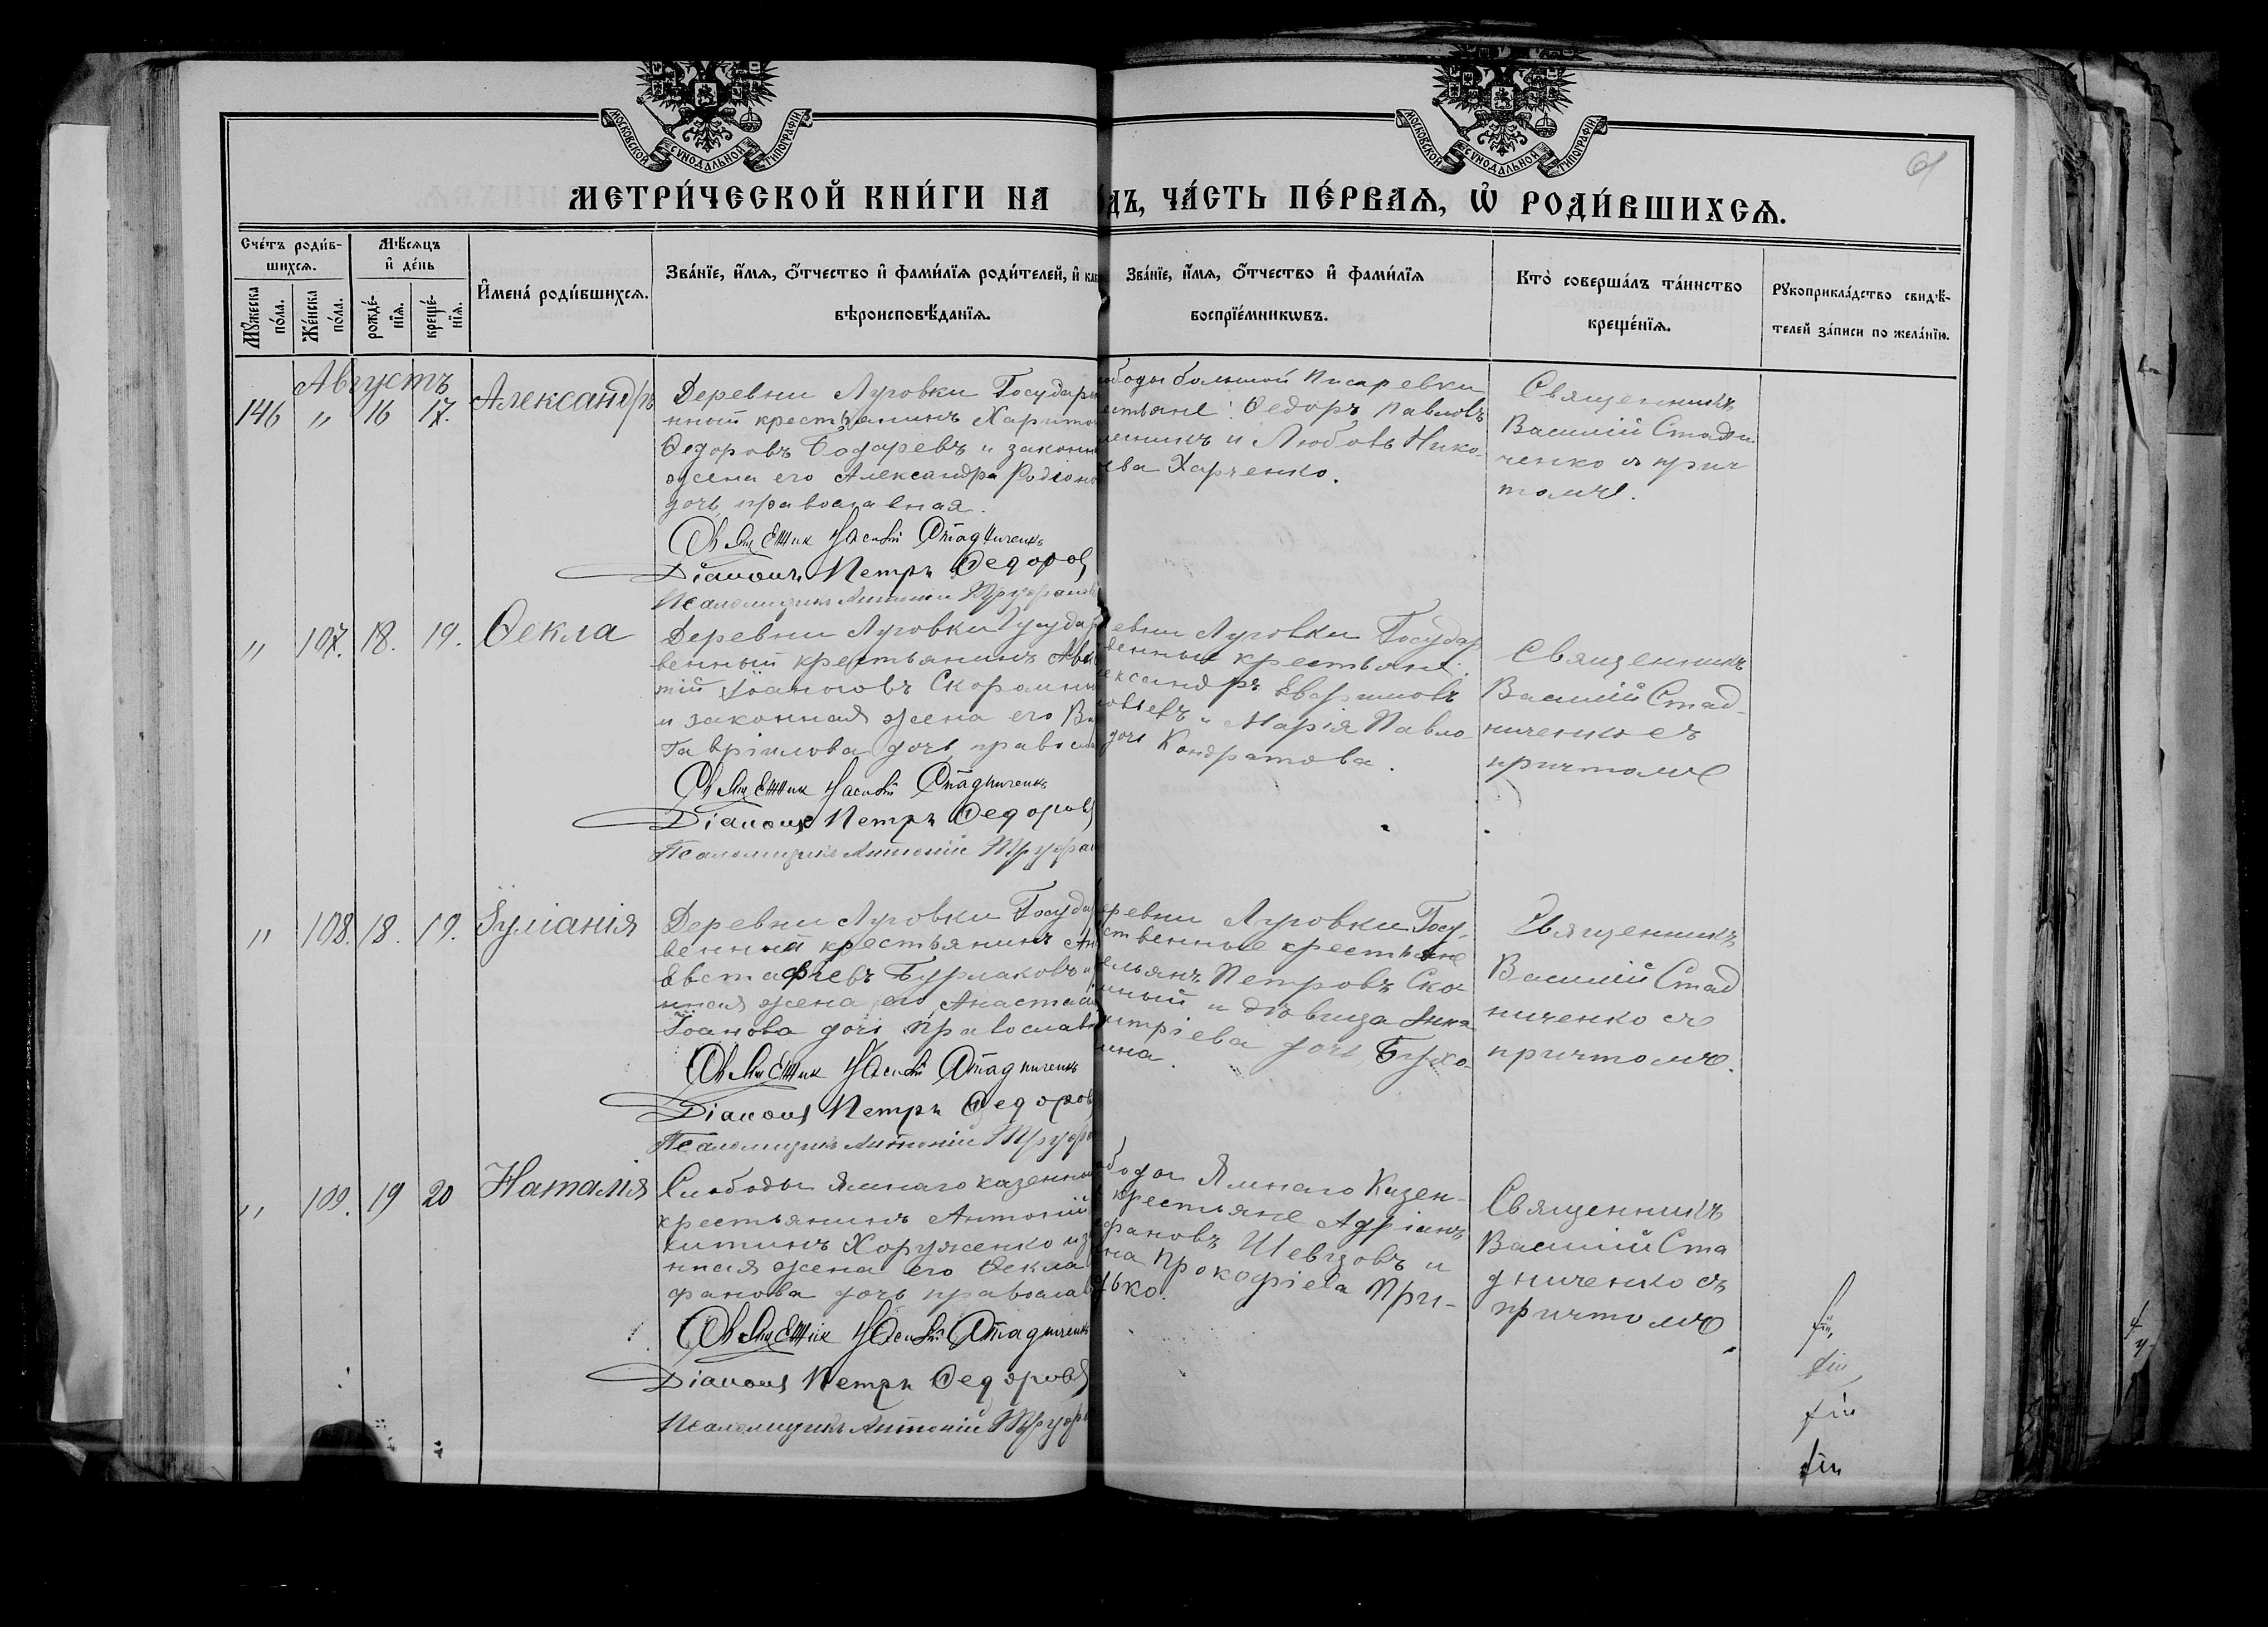 МОСКОВСКОЙ СѴНОДАЛЬНОЙ ТИПОГРАФІИ
МОСКОВСКОЙ СѴНОДАЛЬНОЙ ТИПОГРАФІИ
МЕТРИ́ЧЕСКОЙ КНИ́ГИ НА
ДЪ, ЧА́СТЬ ПЕ́РВАѦ, Ѡ҆ РОДИ́ВШИХСѦ.
Сче́тъ роди́в-
шихсѧ.
Мѣ́сѧцъ
и҆ де́нь
Мꙋ́жеска по́ла.
Же́нска по́ла.
рожде́-нїѧ.
креще́-нїѧ.
И҆мена̀ роди́вшихсѧ.
Зва́нїе, и҆́мѧ, ѻ҆́тчество и҆ фами́лїѧ роди́телей, и҆ как
вѣроисповѣ́данїѧ.
Зва́нїе, и҆́мѧ, ѻ҆́тчество и҆ фами́лїѧ
воспрїе́мникѡвъ.
Кто̀ соверша́лъ та́инство
креще́нїѧ.
Рꙋкоприкла́дство свидѣ́-
телей за́писи по жела́нїю.
Августъ
146 " 16 17. Александръ
Деревни Луговки Государ
нный крестьянинъ Харито
Ѳедоровъ Бодаревъ и законн
жена его Александра Родіоно
дочь, православная.
Священник Васілій Стадниченкъ
Діаконъ Петръ Ѳедоров
Псаломщикъ Антоній Труфанов
ободы большой Писаревки
естьяне: Ѳедоръ Павловъ
и Любовь Нико-
ева Харченко.
Священникъ
Василій Стадни
ченко съ прич
томъ.
" 107. 18. 19. Ѳекла
Деревни Луговки Государ
венный крестьянинъ Ав
тій Іоанновъ Скоромн
и законная жена его Ва
Гавріилова дочь правосла
Священник Васілій Стадниченкъ
Діаконъ Петръ Ѳедоров
Псаломщикъ Антоній Труфан
евни Луговки Государ
венные крестьяне:
ександръ Евфимовъ
овьевъ и Марія Павло-
дочь Кондратова.
Священникъ
Василій Стад-
ниченко съ
причтомъ
" 108. 18. 19. Іуліанія
Деревни Луговки Госуда
венный крестьянинъ Ан
Евстафіевъ Бурлаковъ и
нная жена его Анастасі
Іоанова дочь православн
Священник Васілій Стадниченкъ
Діаконъ Петръ Ѳедоров
Псаломщикъ Антоній Труфа
еревни Луговки Госу-
ственные крестьяне
ельянъ Петровъ Ско-
мный и дѣвица Анна
митріева дочь Бухо-
ина.
Священникъ
Василій Стад
ниченко съ
причтомъ.
" 109. 19 20 Наталія
Слободы Ямнаго казенный
крестьянинъ Антоній
китинъ Хоруженко и з
нная жена его Ѳекла
фанова дочь православ
Священник Васілій Стадниченкъ
Діаконъ Петръ Ѳедоров
Псаломщикъ Антоній Труфа
ободы Ямнаго Казен-
крестьяне Адріанъ
фановъ Шевцовъ и
на Прокофіева При-
дько.
Священникъ
Василій Ста
дниченко съ
причтомъ